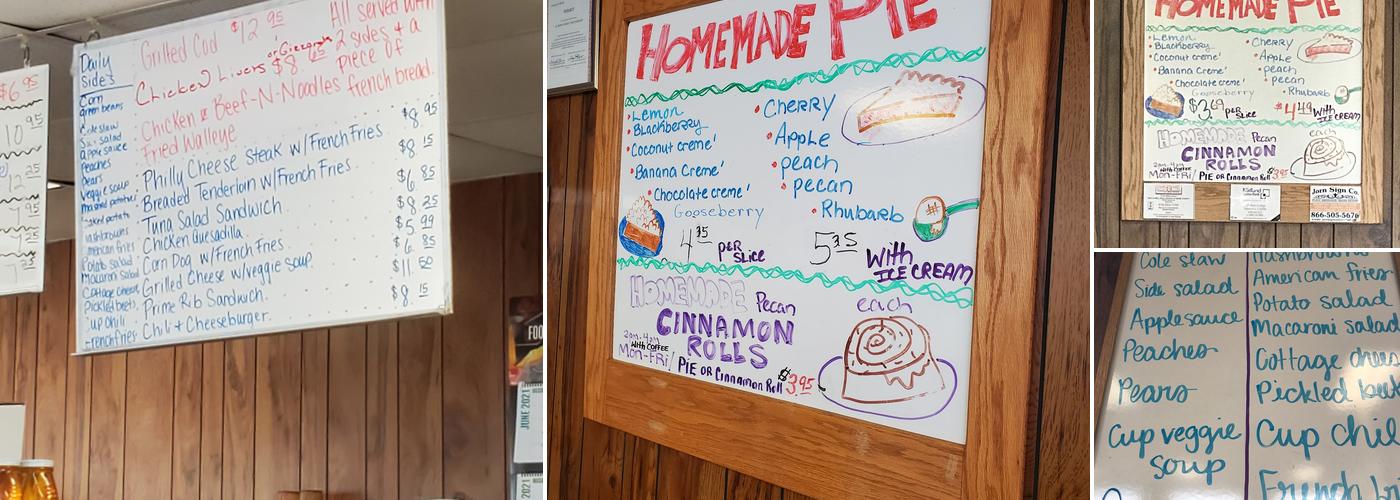 $6.95
10 95
12 25
7 95
7 25
Daily
Sides
Corn
Green beans
Cole slaw
Side salad
Applesauce
Peaches
Pears
Veggie soup
Mashed potatoes
Baked potato
Hashbrowns
American fries
Potato salad
Macaroni salad
Cottage cheese
Pickled beets
Cup chili
Frenchfries
Grilled Cod $12 95
Chicken Livers or Gizzards $8.
All served with
2 sides & a
piece of
french bread.
Chicken & Beef-N-Noodles
Fried Walleye
Philly Cheese Steak w/French Fries $8 95
Breaded Tenderloin w/French Fries $8 15
Tuna Salad Sandwich $6 85
Chicken Quesadilla $8 25
Corn Dog w/French Fries $5 99
Grilled Cheese w/veggie soup $6 85
Prime Rib Sandwich $11 50
Chili & Cheeseburger $8 15
JUNE 2021
2021
HOMEMADE PIE
• Lemon
• Blackberry
• Coconut creme'
• Banana Creme'
• Chocolate creme'
Gooseberry
• Cherry
• Apple
• peach
• pecan
• Rhubarb
4 35 PER SLICE
5 35 With ICE CREAM
HOMEMADE Pecan each
CINNAMON
ROLLS
2am-4pm
With COFFEE
Mon-FRI/ PIE OR Cinnamon Roll $3.95
HOMEMADE PIE
• Lemon
• Blackberry
• Coconut creme'
• Banana Creme'
• Chocolate creme'
Gooseberry
• Cherry
• Apple
• peach
• pecan
• Rhubarb
$3 69 PER SLICE
$4 49 With ICE CREAM
HOMEMADE Pecan each
CINNAMON
ROLLS
With COFFEE
Mon-FRI/ PIE OR Cinnamon Roll $3.95
Jorn Sign Co.
866-505-5676
Cole slaw
Side salad
Applesauce
Peaches
Pears
Cup veggie
soup
Hashbrowns
American fries
Potato salad
Macaroni salad
Cottage chees
Pickled beet
Cup chil
French fr